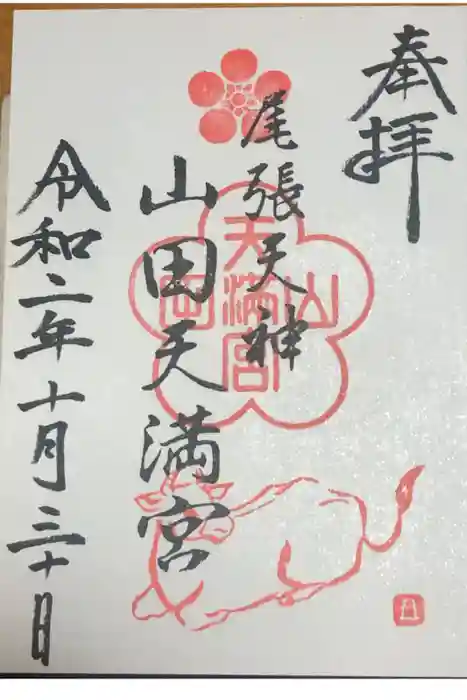 奉拝
尾張天神
山田天満宮
令和二年十月三十日
山田
天満宮